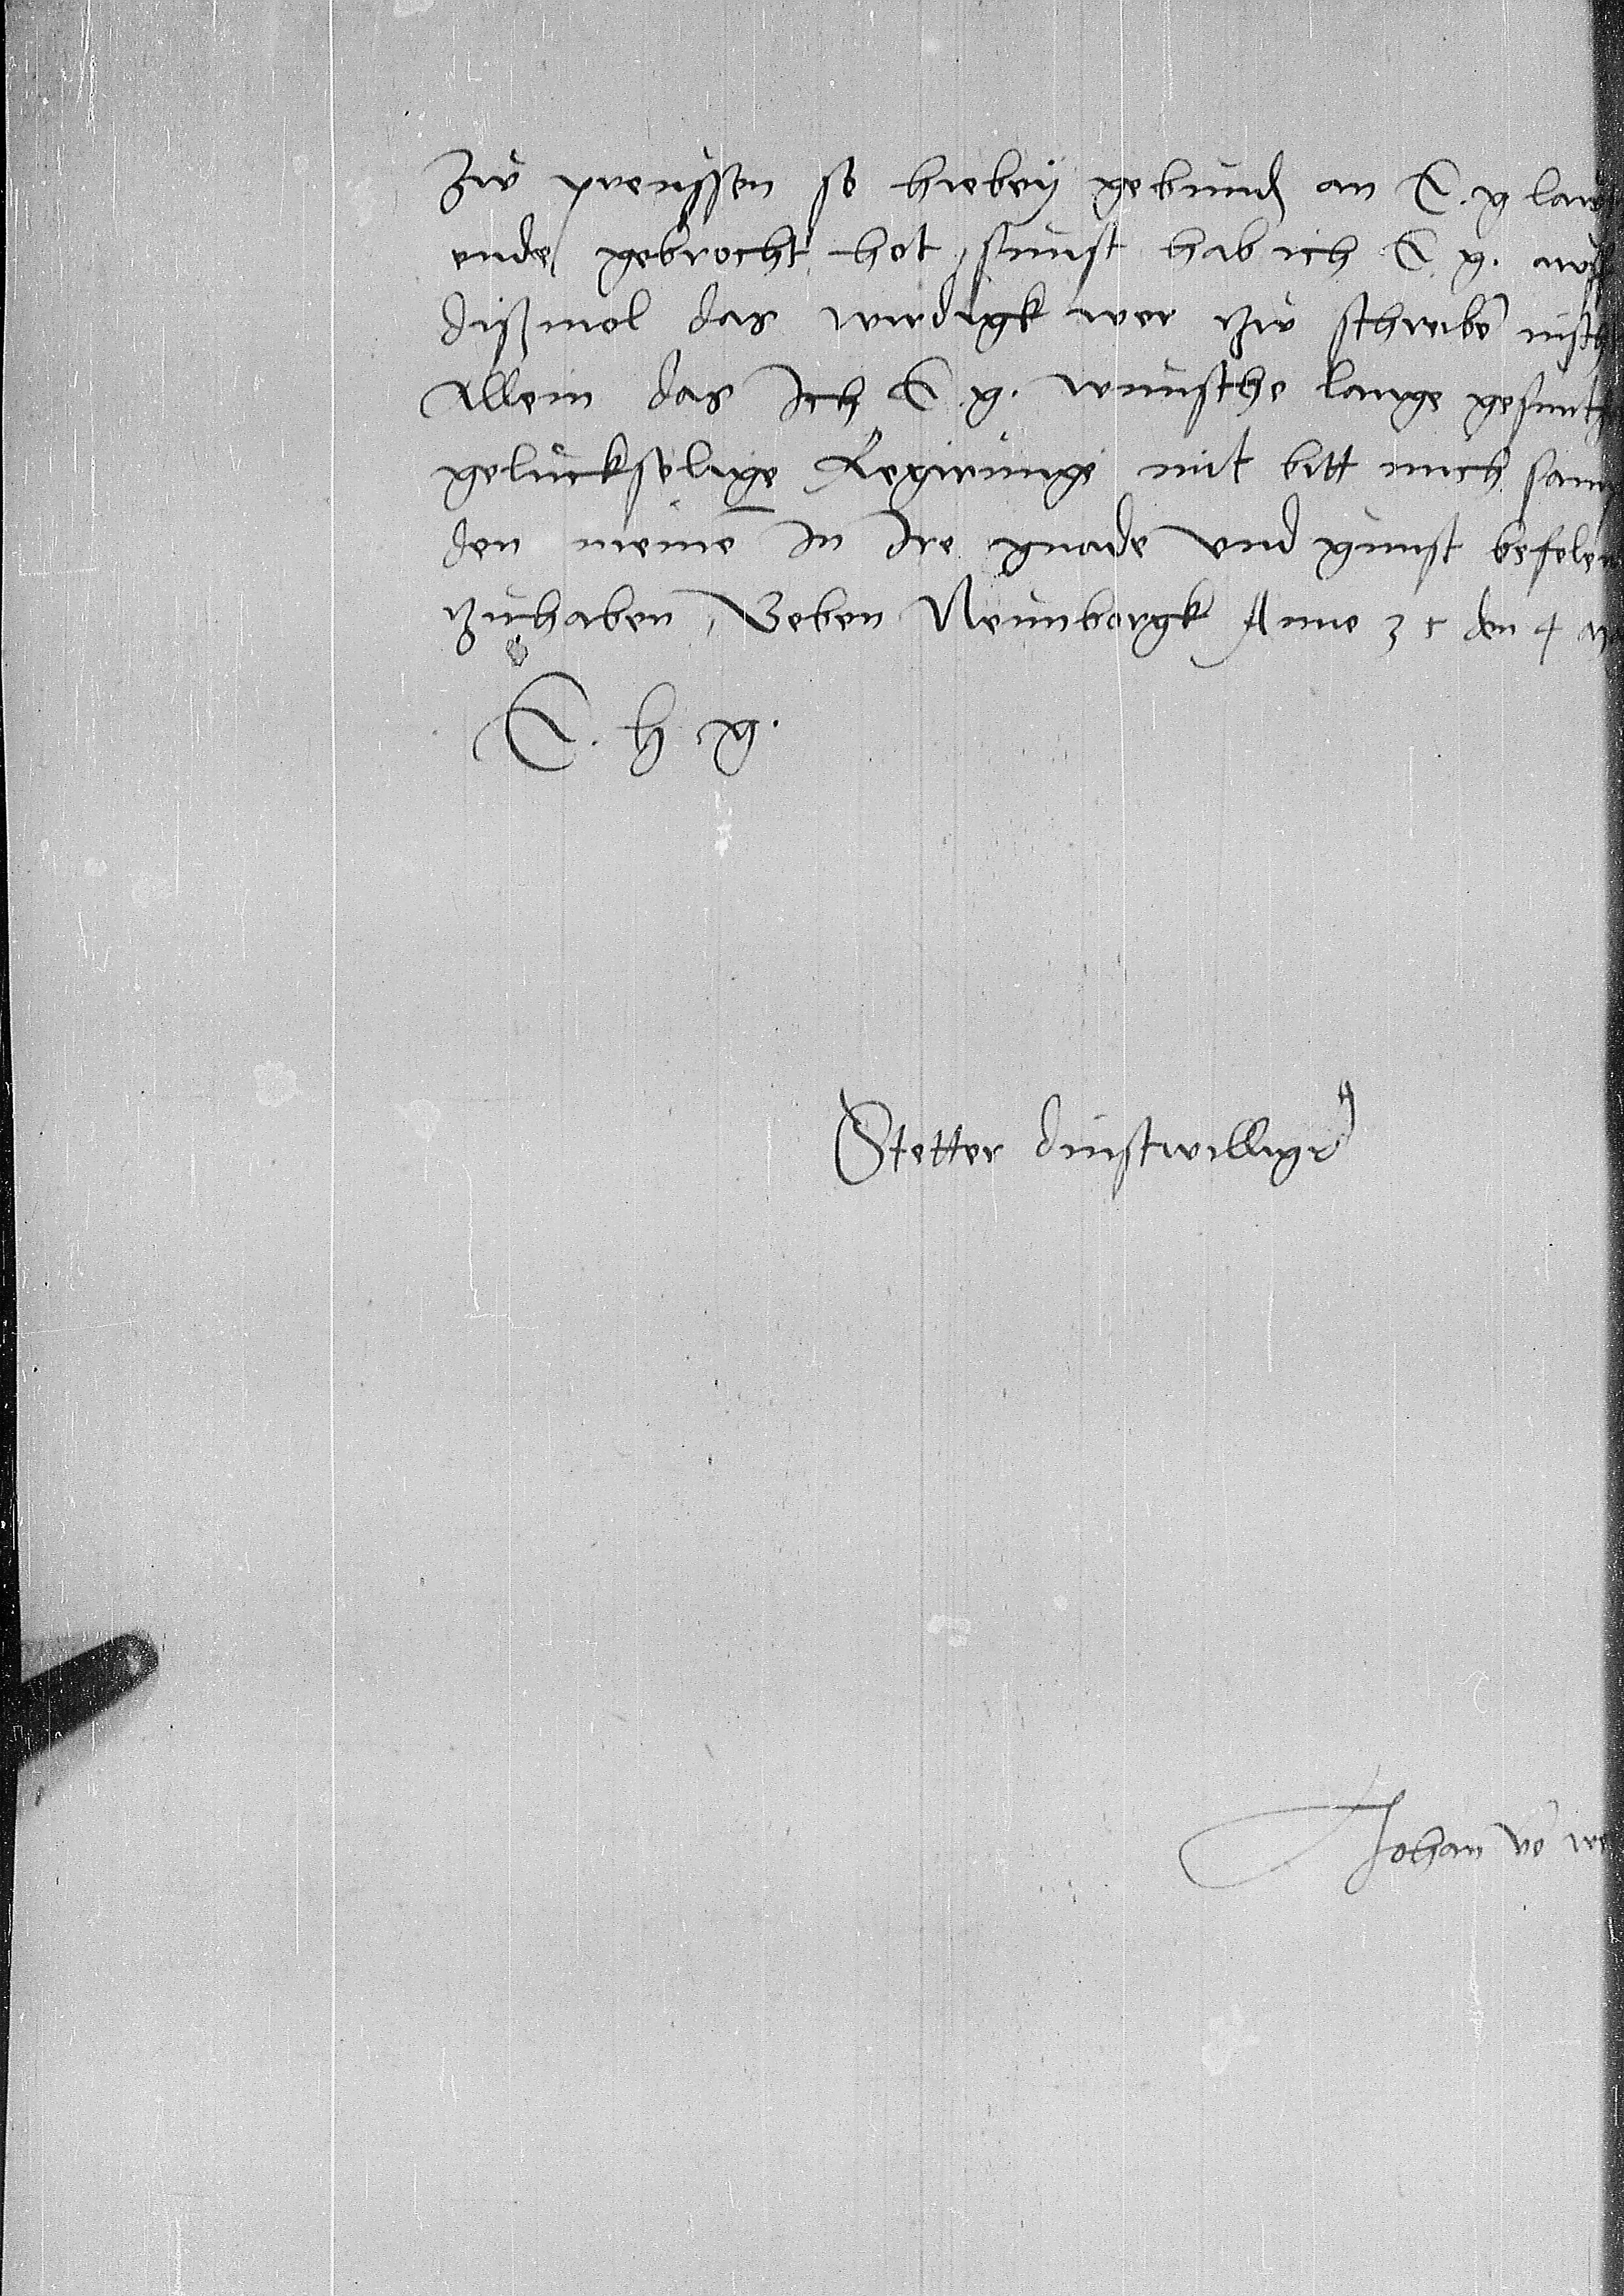 Zu preussen so hiebey gebund an E. g lau
ende gebrocht hot, sunst hab ich E. g. auf
dißmol das wirdigk wer zu schreibe nischt
Allein das Ich E. g. wunsche lange gesunt
geluckselige Regirunge mit bitt mich samt
den meine In Ire gnade und gunst befolen
zuhaben, Geben Neunborgk Anno 31 den 4
E. h. g.
Stetter dinstwilliger
Johan vo we